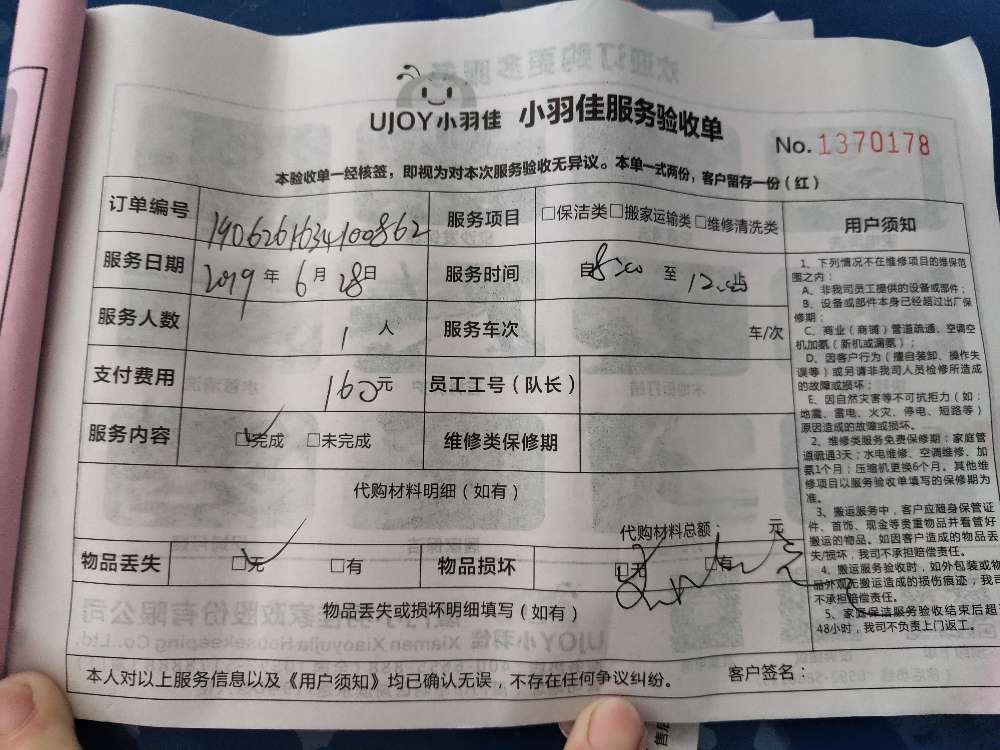 UJOY小羽佳 小羽佳服务验收单
No.1370178
本验收单一经核签，即视为对本次服务验收无异议。本单一式两份，客户留存一份（红）
订单编号 1906261634100862 服务项目 □保洁类□搬家运输类□维修清洗类
服务日期 2019年6月28日 服务时间 自8:00至12:00
服务人数 1人 服务车次 车/次
支付费用 160元 员工工号（队长）
服务内容 □完成 □未完成 维修类保修期
代购材料明细（如有）
代购材料总额： 元
物品丢失 □无 □有 物品损坏 □无 □有
物品丢失或损坏明细填写（如有）
本人对以上服务信息以及《用户须知》均已确认无误，不存在任何争议纠纷。 客户签名：
用户须知
1、下列情况不在维修项目的维保范
围之内：
A、非我司员工提供的设备或部件；
B、设备或部件本身已经超过出厂保
修期；
C、商业（商铺）管道疏通、空调空
机加氨（新机或漏氨）；
D、因客户行为（擅自装卸、操作失
误等）或另请非我司人员检修所造成
的故障或损坏；
E、因自然灾害等不可抗拒力（如：
地震、雷电、火灾、停电、短路等）
原因造成的故障或损坏。
2、维修类服务免费保修期：家庭管
道疏通3天；水电维修、空调维修、加
氨1个月；压缩机更换6个月。其他维
修项目以服务验收单填写的保修期为
准。
3、搬运服务中，客户应随身保管证
件、首饰、现金等贵重物品并看管好
搬运的物品。如因客户造成的物品丢
失/损坏，我司不承担赔偿责任。
4、搬运服务验收时，如外包装或物
品外观无搬运造成的损伤痕迹，我司
不承担赔偿责任。
5、家庭保洁服务验收结束后超过
48小时，我司不负责上门返工。
售后